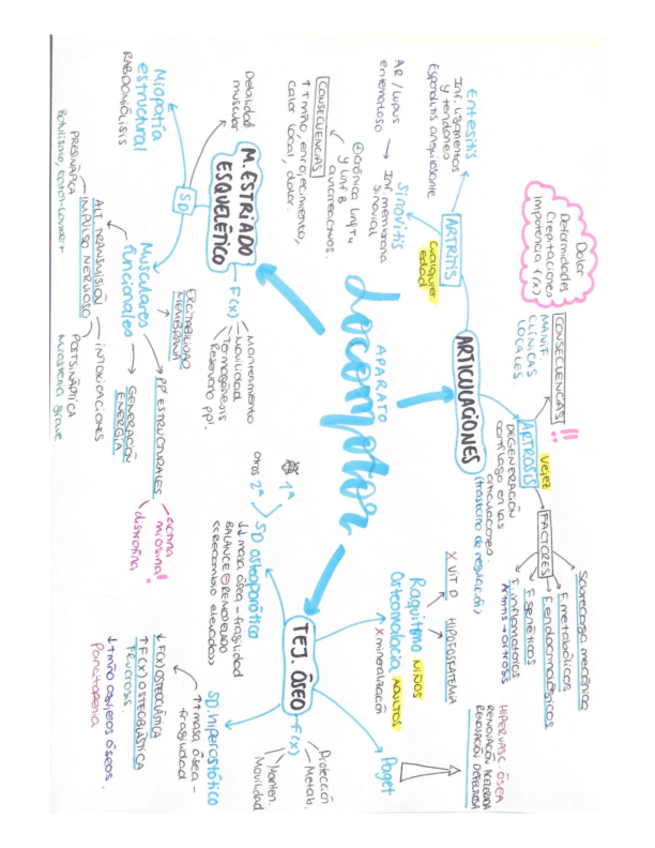 APARATO
Locomotor
ARTICULACIONES
ARTRITIS
cualquier
edad
Entesitis
Inf. ligamentos
y tendones
Espondilitis anquilosante
Sinovitis
Inf. membrana
sinovial
AR / lupus
eritematoso
⊕ crónica linfT4
y linf B
autorreactivos.
CONSECUENCIAS
↑↑ tmño, enrojecimiento,
calor local, dolor.
ARTROSIS
vejez
DEGENERACIÓN
cartílago en las
articulaciones.
(trastorno de regulación)
CONSECUENCIAS
MANIF.
CLÍNICAS
LOCALES.
Dolor
Deformidades
Crepitaciones
Impotencia f(x)
FACTORES
Sobrecarga mecánica
F. metabólicos
F. endocrinológicos
F. genéticos
F. inflamatorios
Artritis → artrosis
M. ESTRIADO
ESQUELÉTICO
F(x)
Mantenimiento
Movilidad
Termogénesis
Reservorio pp!.
SD
Debilidad
muscular
Miopatía
estructural
RABDOMIÓLISIS
Musculares
funcionales
EXCITABILIDAD
MEMBRANA
ALT. TRANSMISIÓN
IMPULSO NERVIOSO
PRESINÁPTICA
Botulismo, eaton-Lambert
INTOXICACIONES
POSTSINÁPTICA
Miastenia grave
GENERACIÓN
ENERGÍA
PP ESTRUCTURALES
actina
miosina
distrofina
TEJ. ÓSEO
F(x)
Protección
Metab.
Manten.
Movilidad
SD osteoporótico
1ª
2ª
otros
↓↓ masa ósea - fragilidad
BALANCE ⊖ REMODELADO
<<recambio elevado>>
Raquitismo NIÑOS
Osteomalacia ADULTOS
X mineralización
X VIT D
HIPOFOSFATEMIA
Paget
HIPERVASC. ÓSEA
RENOVACIÓN ACELERADA
RENOVACIÓN DEFECTUOSA
SD. hiperostótico
↑↑ masa ósea -
fragilidad
↓ F(x) OSTEOCLÁSTICA
↑ F(x) OSTEOBLÁSTICA
Fluorosis.
↓ tmño orificios óseos.
Pancitopenia